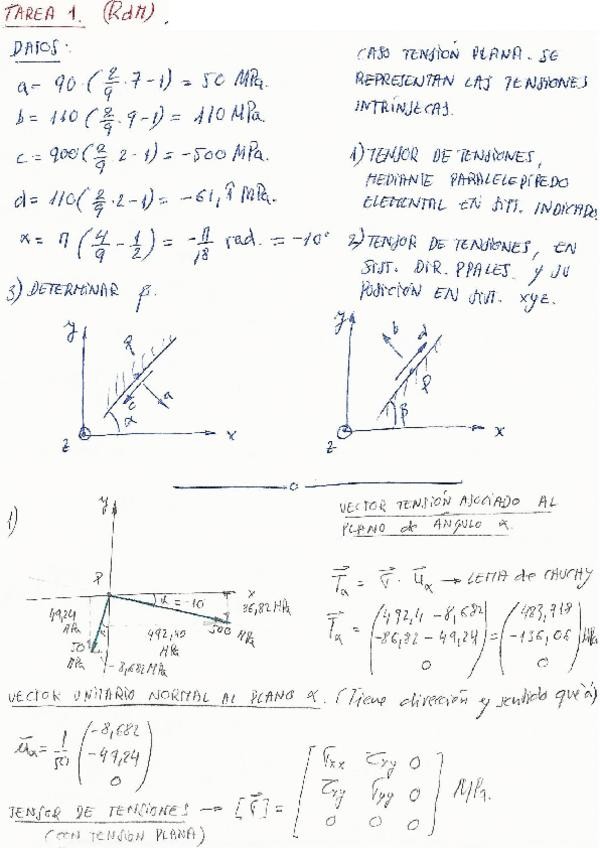 TAREA 1. (RdM).
DATOS:
a = 90·(2/9·7-1) = 50 MPa.
b = 110(2/9·9-1) = 110 MPa.
c = 900(2/9·2-1) = -500 MPa.
d = 110(2/9·2-1) = -61,1̂ MPa.
α = π(4/9 - 1/2) = -π/18 rad. = -10°
3) DETERMINAR β.
CASO TENSIÓN PLANA. SE
REPRESENTAN LAS TENSIONES
INTRÍNSECAS.
1) TENSOR DE TENSIONES,
MEDIANTE PARALELEPÍPEDO
ELEMENTAL EN SIST. INDICADO.
2) TENSOR DE TENSIONES, EN
SIST. DIR. PPALES. y SU
POSICIÓN EN SIST. xyz.
y
c
a
α
z
x
y
b
d
P
β
z
x
1)
y
P
x
α = -10
86,82 MPa
49,24
MPa
50
MPa
492,40
MPa
500
MPa
-8,682 MPa
VECTOR TENSIÓN ASOCIADO AL
PLANO de ANGULO α.
T⃗α = σ⃗ · u⃗α → LEMA de CAUCHY
T⃗α = (492,4 - 8,682
-86,82 - 49,24
0) = (483,718
-136,06
0) MPa
VECTOR UNITARIO NORMAL AL PLANO α. (Tiene dirección y sentido que a)
u⃗α = 1/50 (-8,682
-49,24
0)
TENSOR DE TENSIONES → [σ⃗] =
(CON TENSION PLANA)
[σxx τxy 0
τxy σyy 0
0 0 0] MPa.